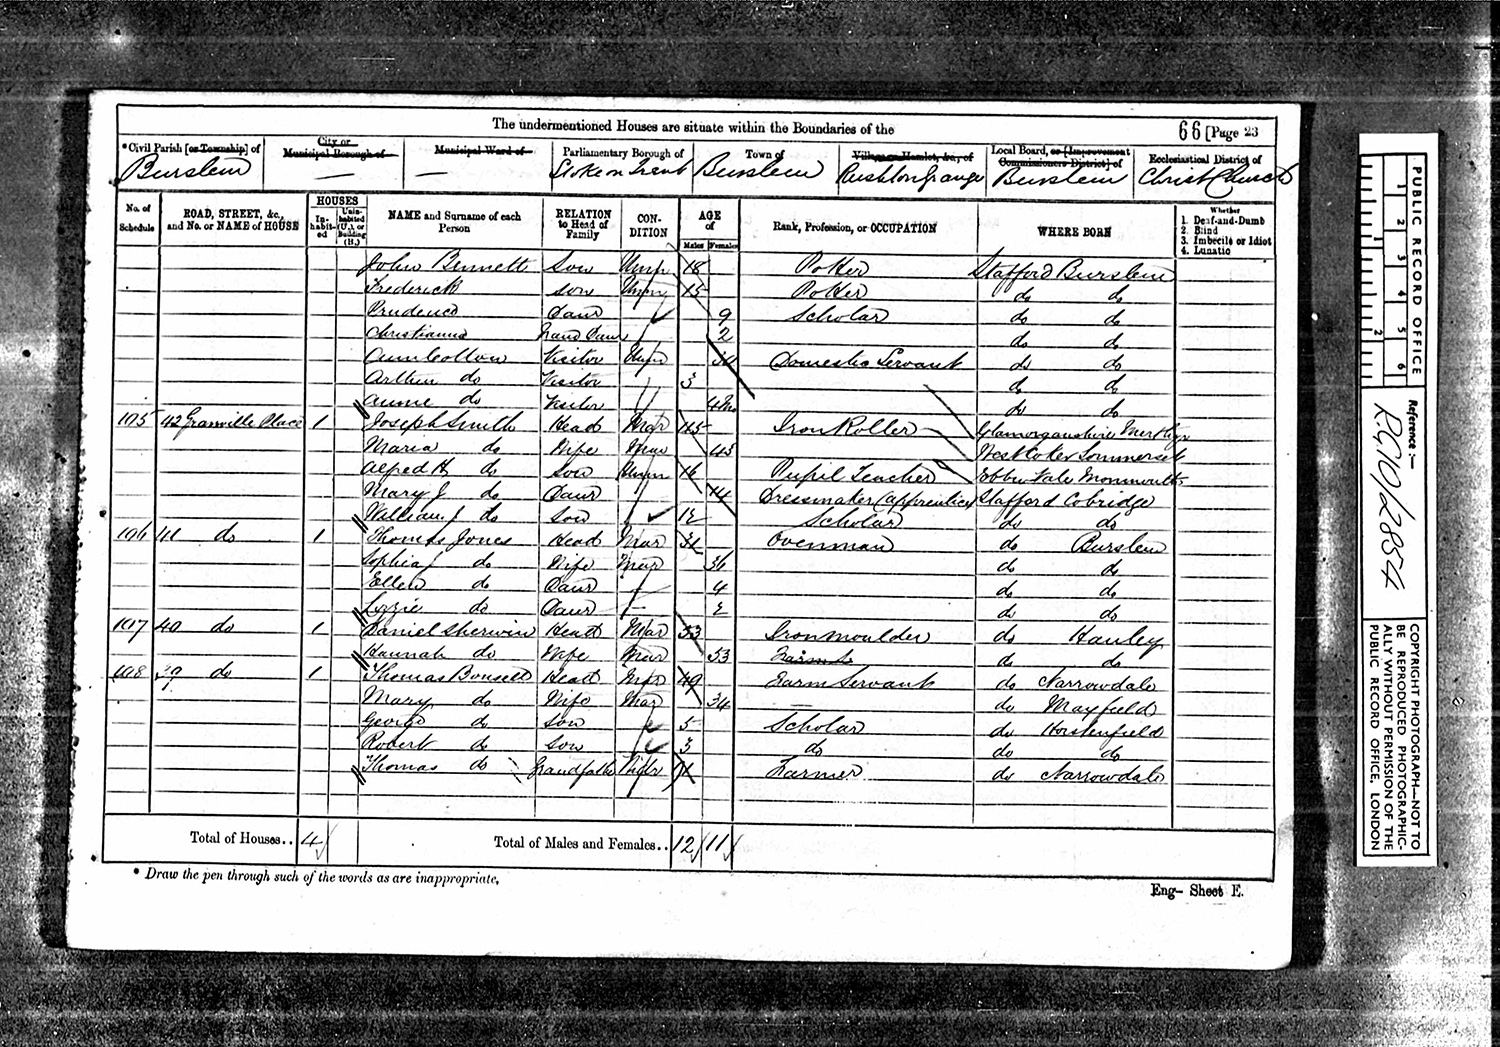 The undermentioned Houses are situate within the Boundaries of the
66 [Page 23
*Civil Parish [or Township] of
City or Municipal Borough of
Municipal Ward of
Parliamentary Borough of
Town of
Village or Hamlet, &c., of
Local Board, or [Improvement Commissioners District] of
Ecclesiastical District of
Burslem — — Stoke on Trent Burslem Rushton Grange Burslem Christ Church
No. of Schedule
ROAD, STREET, &c., and No. or NAME of HOUSE
HOUSES
Inhabited
Uninhabited (U.), or Building (B.)
NAME and Surname of each Person
RELATION to Head of Family
CONDITION
AGE of
Males Females
Rank, Profession, or OCCUPATION
WHERE BORN
Whether
1. Deaf-and-Dumb
2. Blind
3. Imbecile or Idiot
4. Lunatic
John Bennett Son Unm 18 Potter Stafford Burslem
Frederick Son Unm 15 Potter do do
Prudence Daur 9 Scholar do do
Christianna Grand Daur 2 do do
Ann Cotton Visitor Unm Domestic Servant do do
Arthur do Visitor 3 do do
Annie do Visitor 4 Mo do do
105 42 Granville Place 1 Joseph Smith Head Mar 45 Iron Roller Glamorganshire Merthyr
Maria do Wife Mar 45 West Coker Sommerset
Alfred H do Son Unm 16 Pupil Teacher Ebbw Vale Monmouth
Mary J do Daur 14 Dressmaker (apprentice) Stafford Cobridge
William J do Son 12 Scholar do do
106 41 do 1 Thomas Jones Head Mar 31 Ovenman do Burslem
Sophia do Wife Mar 36 do do
Ellen do Daur 4 do do
Lizzie do Daur 2 do do
107 40 do 1 Daniel Sherwin Head Mar 53 Iron moulder do Hanley
Hannah do Wife Mar 53 do do
108 39 do 1 Thomas Head Mar 49 Farm Servant do Narrowdale
Mary do Wife Mar 34 — do Mayfield
George do Son 5 Scholar do
Robert do Son 3 do do do
Thomas do Grandfather Widr 71 Farmer do Narrowdale
Total of Houses.. 4
Total of Males and Females.. 12 11
* Draw the pen through such of the words as are inappropriate.
Eng— Sheet E.
PUBLIC RECORD OFFICE
1 2 3 4 5 6
1 2
Reference :—
R.G.10/2854
COPYRIGHT PHOTOGRAPH—NOT TO
BE REPRODUCED PHOTOGRAPHIC-
ALLY WITHOUT PERMISSION OF THE
PUBLIC RECORD OFFICE, LONDON